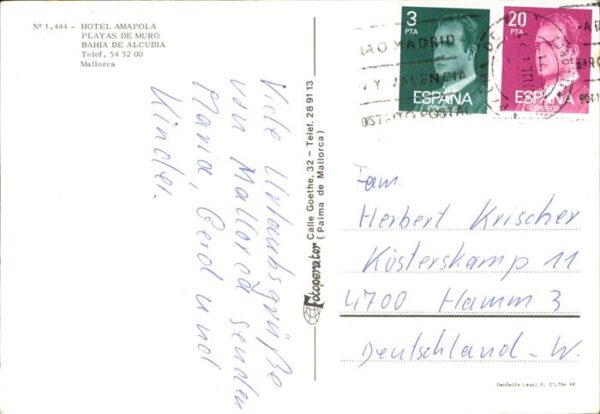 Nº 1.444 - HOTEL AMAPOLA
PLAYAS DE MURO
BAHIA DE ALCUDIA
Telef. 54 52 00
Mallorca
Viele Urlaubsgrüße
von Mallorca senden
Maria, Gerd und
Kinder.
Fotoperator Calle Goethe, 32 - Telef. 28 91 13
(Palma de Mallorca)
3
PTA
ESPAÑA
CORREOS
20
PTA
ESPAÑA
CORREOS
MADRID
Y VALENCIA
DISTRITO POSTAL
Fam.
Herbert Krischer
Kösterskamp 11
4700 Hamm 3
Deutschland-W.